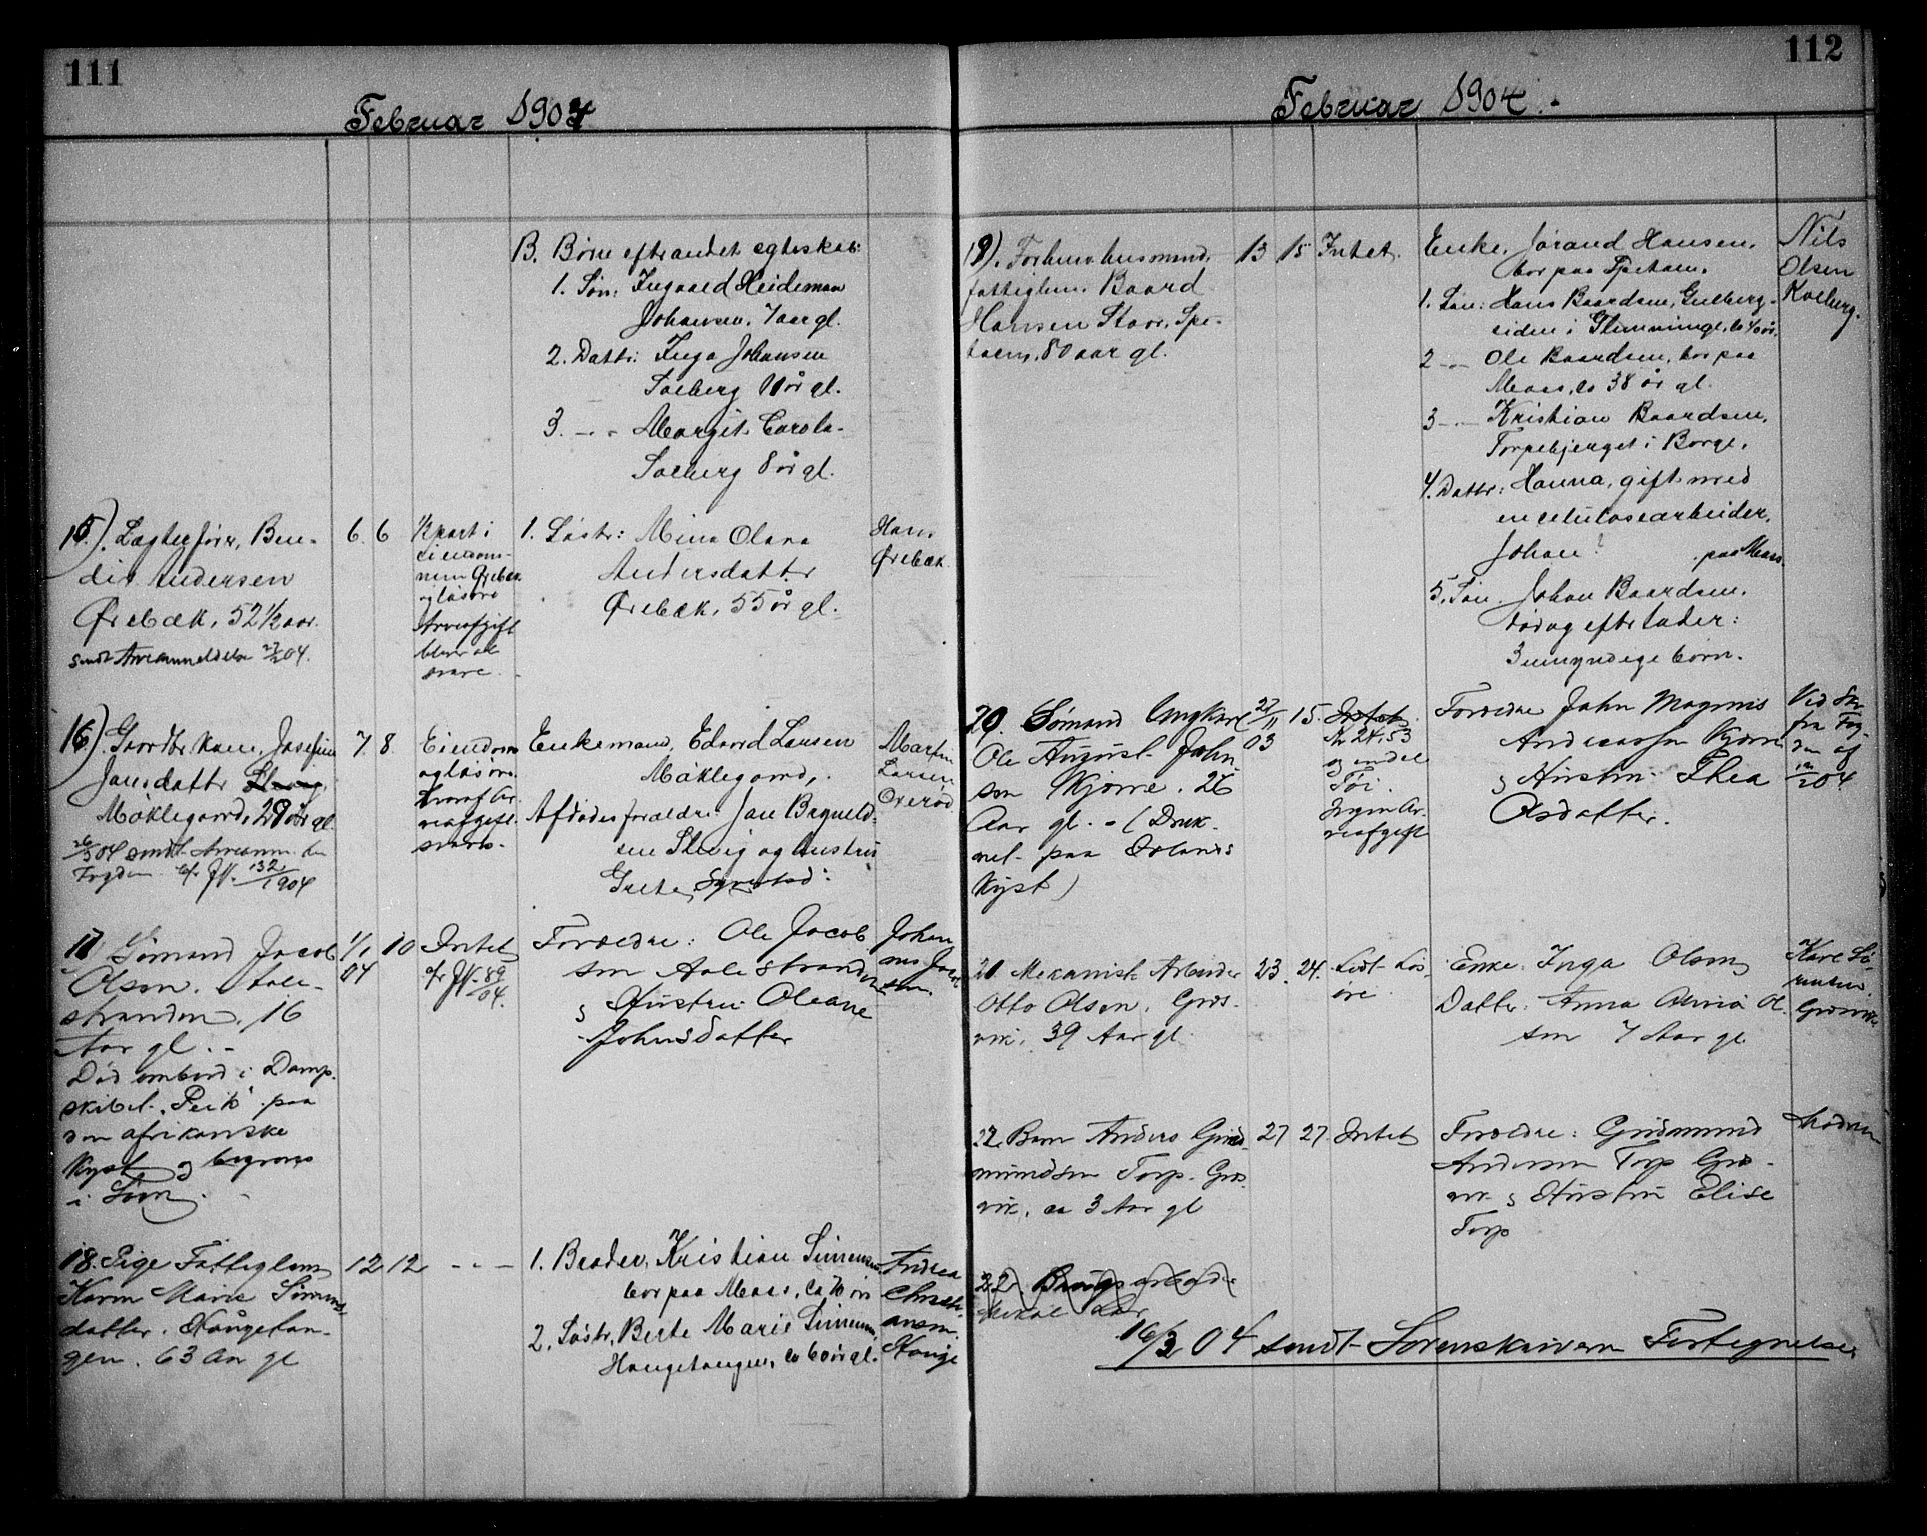 111
Februar 1904
B. Børn eftr andet egteskab:
1. Søn: Ingvald Heideman
Johansen, 7 aar gl.
2. Dattr: Inga Johansen
Solberg 11 år gl.
3. -"- Margit Carola
Solberg 8 år gl.
15). Lægteskjørr, Ben-
dix Andersen
Ørebæk, 52 1/2 aar.
sendt Arveanmeldelse 27/2 04.
6. 6
1/2 part i
Eiendom-
men Ørebæk
og løsøre
Arveafgift
bliver at
svare.
1. Søstr: Mina Olava
Andersdattr
Ørebæk, 55 år gl.
Hans
Ørebæk
16). Gaardbr kone, Josefine
Jansdattr
Møklegaard, 29 år gl.
26/3 04 sendt Arveanm. til
Fogden cfr JN. 132/1904
7. 8.
Eiendom
og løsøre.
Arveafgift
svares.
Enkemand, Edvard Larsen
Møklegaard,
Afdødes forældre: Jan Bryneld-
sen Slevig og hustru
Grete,
Martin
Larsen
Ørerød
17 Sømand Jacob
Olsen. Aale-
stranden. 16
Aar gl. -
Død ombord i Damp-
skibet "Peik" paa
den afrikanske
Kyst og begraves
i Søen.
1/1 04
10
Intet
cfr JN. 89/04.
Forældre: Ole Jacob
sen Aalestranden
& Hustru Oleane
Johnsdatter
Johan
nes Jacob
sen.
18. Pige Fattiglem
Karen Marie Simens
datter. Haugetan-
gen. 63 Aar gl
12 12
- - -
1. Broder, Kristian Simensen
bor paa Moss, ca 70 år
2. Søstr, Berte Marie Simensen,
Haugetangen, ca 60 år gl.
Andrea
Christi
ansen.
Hauge
112
Februar 1904.-
19). Forhenv husmand,
fattiglem. Baard
Hansen Stoor, Spe-
taen, 80 aar gl.
13 15 Intet.
Enke, Jørand Hansen,
bor paa Spetaen.
1. Søn: Hans Baardsen, Gulberg-
siden i Glemminge, ca 40 år.
2 -"- Ole Baardsen, bor paa
Moss, ca 38 år gl.
3 -"- Kristian Baardsen,
Torpebjerget i Borge.
4. Dattr: Hanna, gift med
en celulosearbeider,
Johan? paa Moss.
5. Søn. Johan Baardsen.
død og efterlader:
3 umyndige børn.
Nils
Olsen
Kolberg.
20. Sømand Ungkarl
Ole August John-
sen Kjørne. 26
Aar gl. - (Druk-
net paa Ørlandets
Kyst)
27/11 03
15.
Intet
Kr 24,53
og endel
Tøi.
Ingen Ar-
veafgift
Forældre John Magnus
Andreassen Kjørne
& Hustru Thea
Olsdatter.
Vid Skr
fra Fog-
den af
12/2 04
21. Mekanisk Arbeider
Otto Olsen. Græs-
vik. 39 Aar gl.
23. 24. Lidt Løs-
øre
Enke: Inga Olsen
Datter: Anna Olivia Ol-
sen 7 Aar gl
Karl Sø-
rensen.
Græsvik
22. Barn Anders Gud-
mundsen Torp. Græs-
vik. ca 3 Aar gl
27 27 Intet
Forældre: Gudmund
Andersen Torp Græs-
vik & Hustru Elise
Torp
Moderen
22. Brugsarbeider
16/3 04 sendt Sorenskriveren Fortegnelse